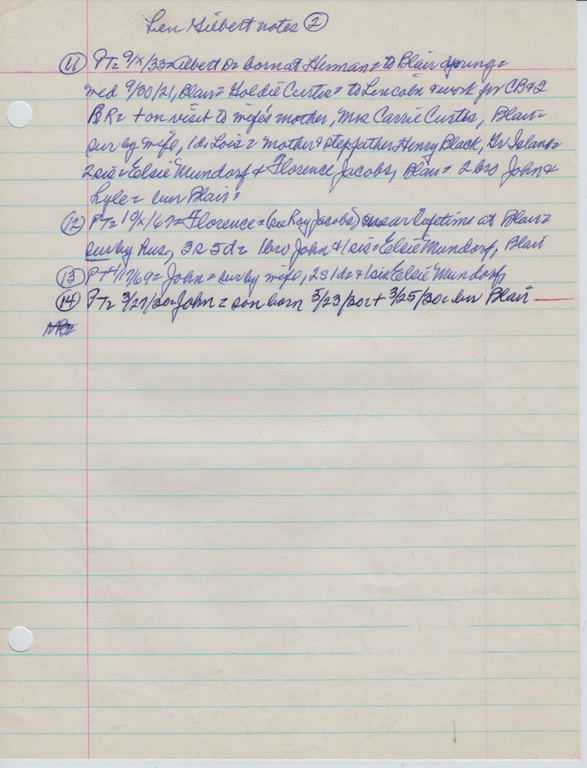 Len Gilbert notes ②
⑪ PT= 9/x/33= Albert D= born at Herman= to Blair young=
med 9/30/21, Blair= Goldie Curtis= to Lincoln & work for CB&Q
RR= + on visit to wife's mother, Mrs Carrie Curtis, Blair=
sur by wife, 1d Lois= mother & stepfather Henry Black, Gr Island=
2 sis= Elsie Mundorf & Florence Jacobs, Blair= 2 bro John &
Lyle= bur Blair=
⑫ PT= 19/x/67= Florence= (Ray Jacobs) near lifetime at Blair=
sur by hus, 3s 5d= 1 bro John & 1 sis= Elsie Mundorf, Blair
⑬ John= sur by wife, 2s 1d & 1 sis Elsie Mundorf,
⑭ PT= 3/27/30= John= son born 3/23/30= + 3/25/30= bur Blair